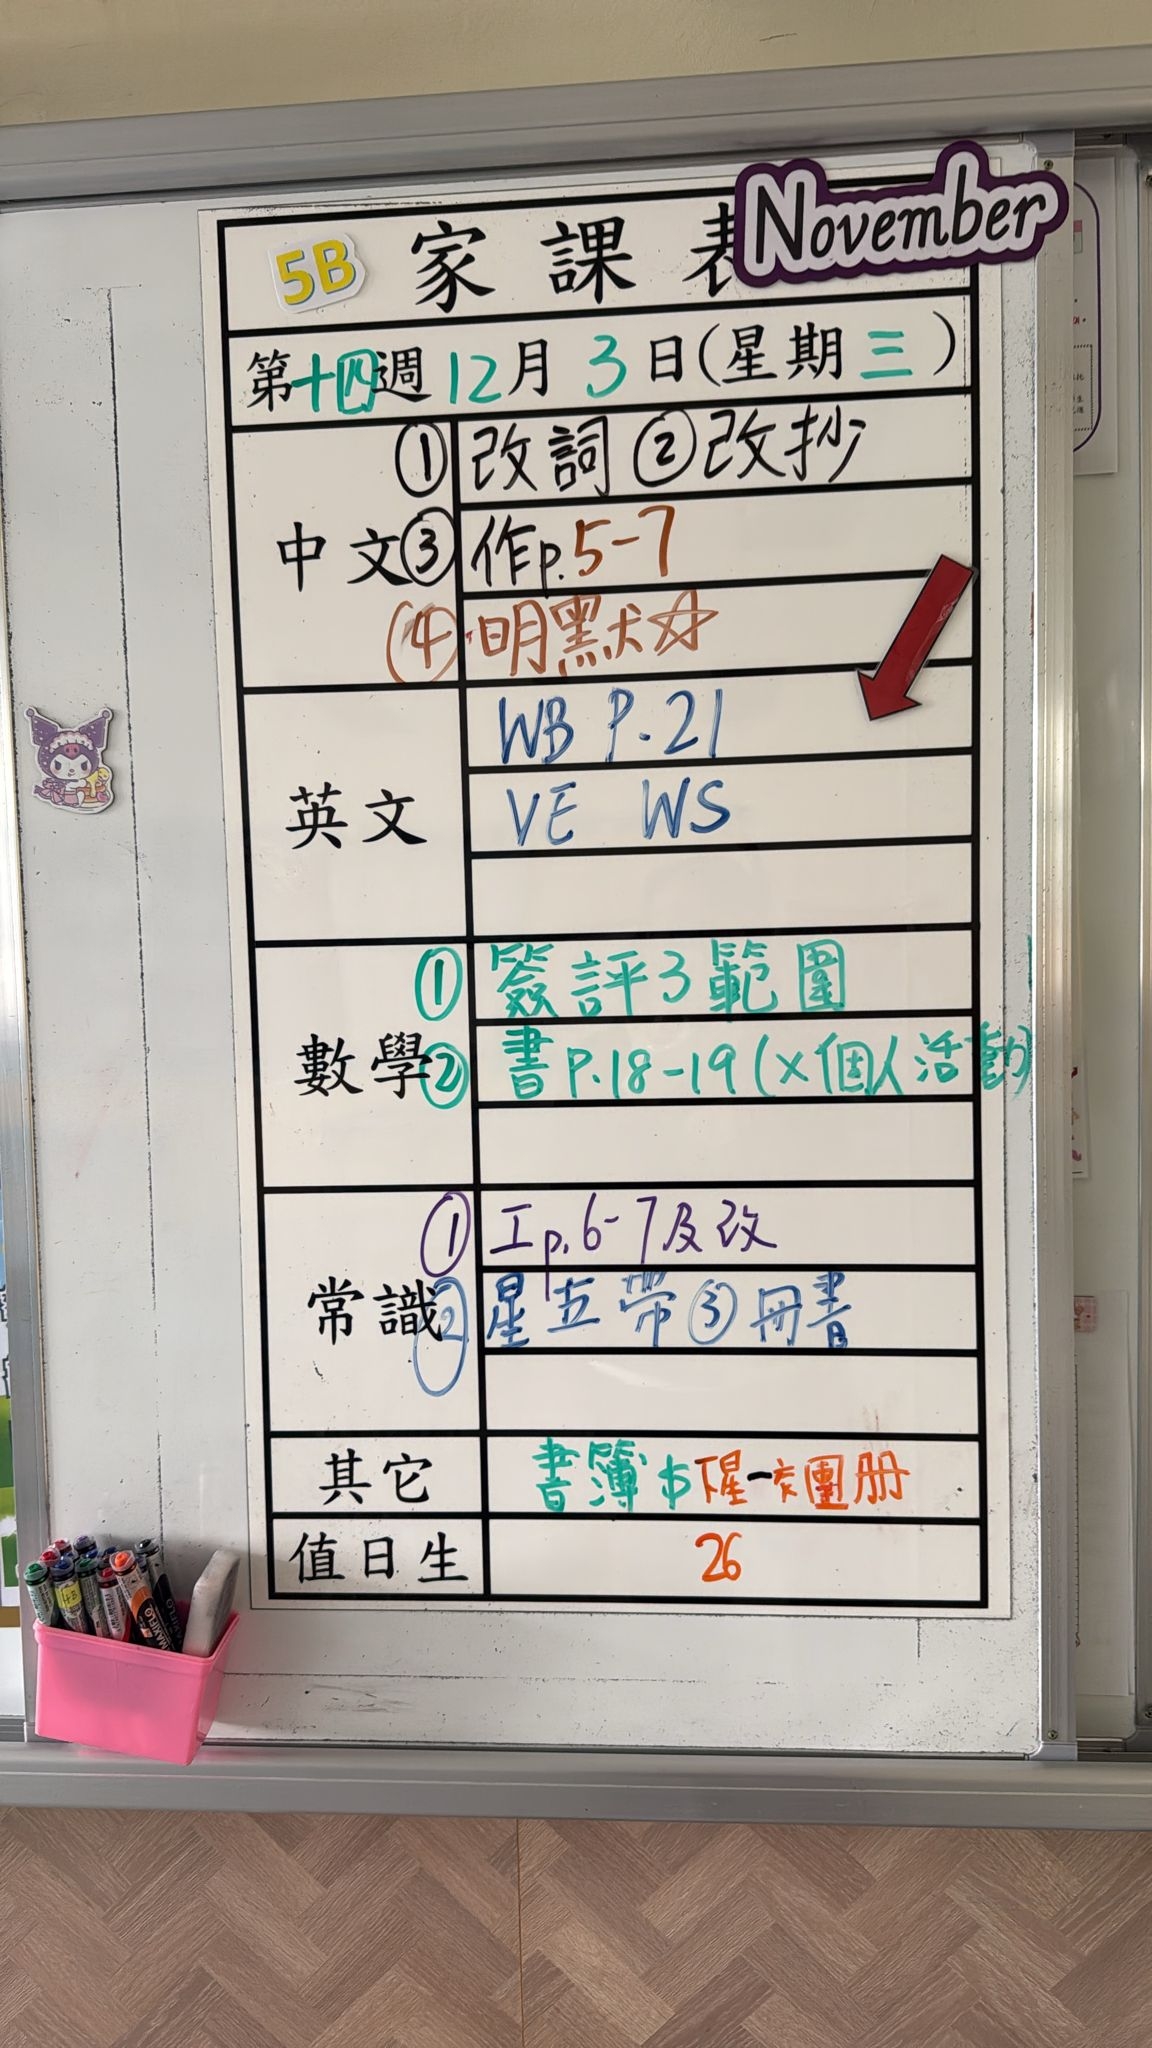 November
5B 家課表
第十四週 12月3日(星期三)
① 改詞 ② 改抄
中文 ③ 作p.5-7
④ 明默☆
WB P.21
英文 VE WS
① 簽評3範圍
數學 ② 書P.18-19(×個人活動)
① 工p.6-7及改
常識 ② 星五帶③冊書
其它 書簿 下星一交團册
值日生 26